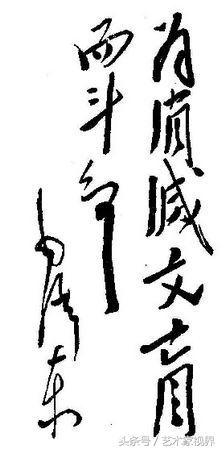 为消灭文盲
而斗争
毛泽东
头条号/艺术家视界